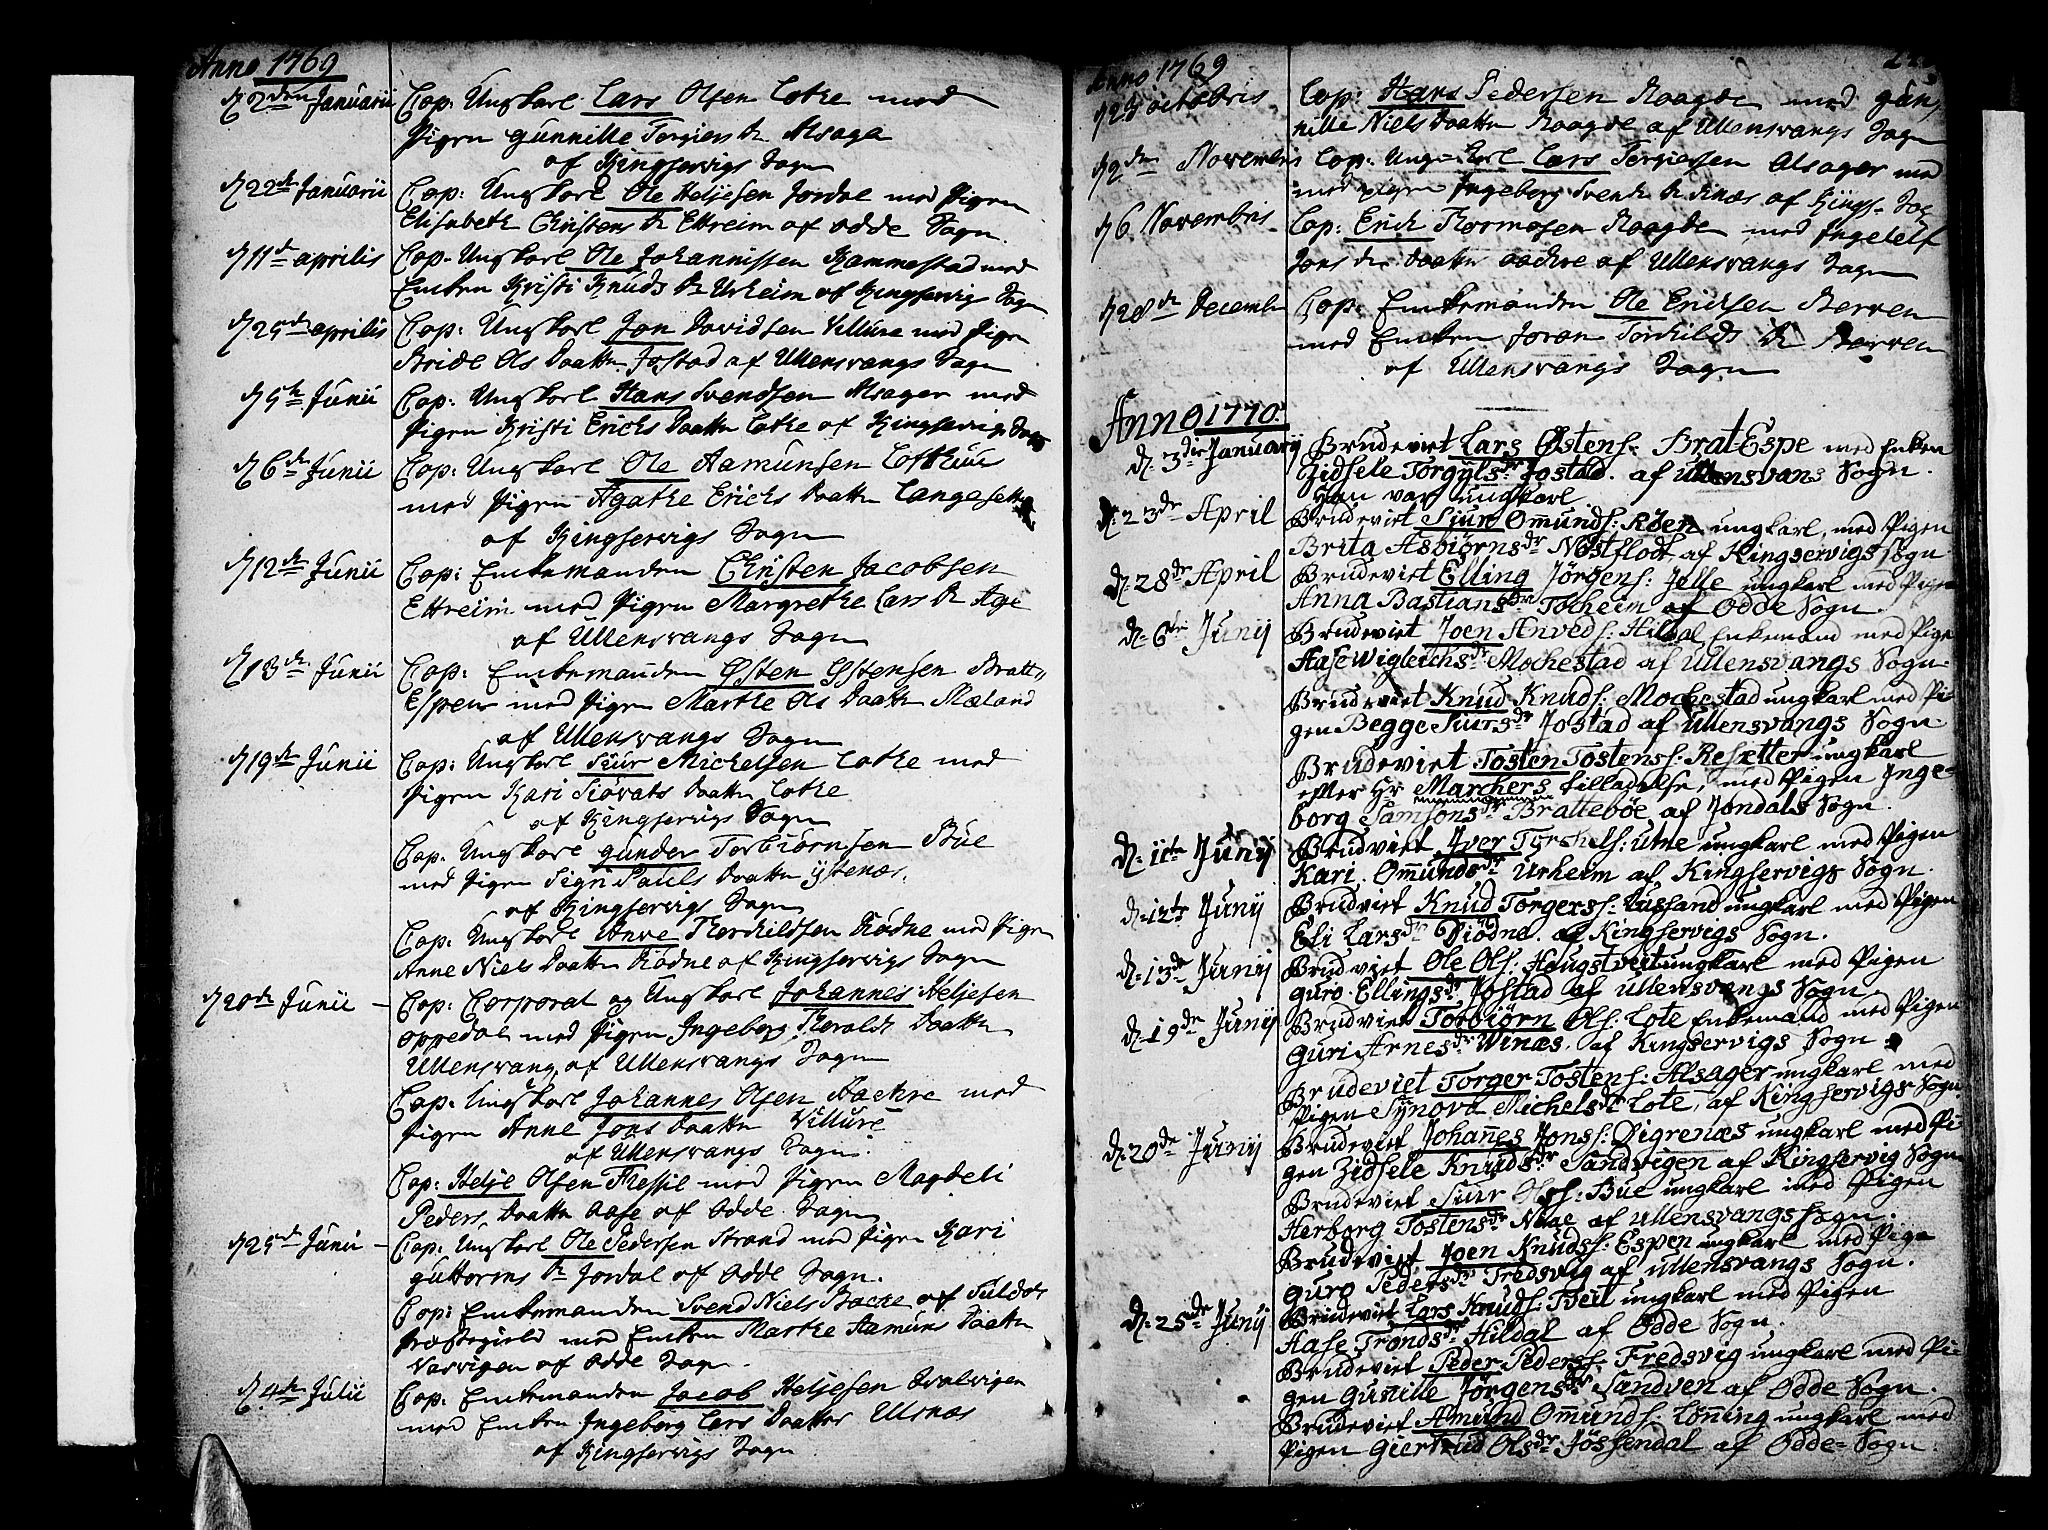 Anno 1769
d 2den Januarii Cop: Ungkarl Lars Olsen Lothe med
Pigen Gunnille Torgiers Dr Alsager
af Kingservigs Sogn
d 22de Januarii Cop: Ungkarl Ole Heljesen Jordal med Pigen
Elisabeth Christens Dr Eitreim af Odde Sogn.
d 11te aprilis Cop: Ungkarl Ole Johannissen Hammestad med
Enken Kristi Knuds Dr Urheim af Kingservigs Sogn
d 25de aprilis Cop: Ungkarl Jon Davidsen Villure med Pigen
Bride Ols Daatter Jostad af Ullensvangs Sogn
d 5te Junii Cop: Ungkarl Hans Svendsen Alsager med
Pigen Kristi Erichs Daatter Lothe af Kingservigs Sogn
d 6de Junii Cop: Ungkarl Ole Aamunsen Lothe
med Pigen Agathe Erichs Daatter Langesetter
af Kingservigs Sogn
d 12de Junii Cop: Enkemanden Christen Jacobsen
Eitreim med Pigen Margrethe Lars Dr Age
af Ullensvangs Sogn
d 13de Junii Cop: Enkemanden Østen Østensen Bratt-
Espen med Pigen Marthe Ols Daatter Mæland
af Ullensvangs Sogn
d 19de Junii Cop: Ungkarl Siur Michelsen Lothe med
Pigen Kari Siovats Daatter Lothe
af Kingservigs Sogn
Cop: Ungkarl Gunder Torbiørnsen Bue
med Pigen Sigri Pauls Daatter Ystenæs.
af Kingservigs Sogn
Cop: Ungkarl Anve Thorkildsen Rødne med Pigen
Anne Niels Daatter Rødne af Kingservigs Sogn
d 20de Junii - Cop: Corporal og Ungkarl Johannes Heljesen
Oppedal med Pigen Ingeborg Thoralds Daatter
Ullensvang af Ullensvangs Sogn
Cop: Ungkarl Johannes Olsen Aachre med
Pigen Anne Jons Daatter Villure
af Ullensvangs Sogn.
Cop: Helje Olsen Flessie med Pigen Magdeli
Peders Daatter Aase af Odde Sogn
d 25de Junii - Cop: Ungkarl Ole Pedersen Strand med Pigen Kari
Guttorms Dr Jordal af Odde Sogn.
Cop: Enkemanden Svend Niels Backe af Suldals
Præstegield med Enken Marthe Aamuns Daatter
af Odde Sogn.
d 4de Julii Cop: Enkemanden Jacob Heljesen
med Enken Ingeborg Lars Daatter Ulsnæs
af Kingservigs Sogn
Anno 1769
d 23 octobris Cop: Hans Pedersen Raagde med Gun,
nille Niels Daatter Raagde af Ullensvangs Sogn
d 2den Novembris Cop: Ungkarl Lars Torgiersen Alsager med
med Pigen Ingeborg Svends Dr af Kings- Sogn
d 6 Novembris Cop: Erich Thormosen Raagde med Ingelelf
Jons Daatter Aachre af Ullensvangs Sogn
d 28de Decembr Cop: Enkemanden Ole Erichsen Berven
med Enken Joran Torkilds Dr Berven
af Ullensvangs Sogn
Anno 1770.
d. 3die January Brudeviet Lars Østens: Brat-Espe med Enken
Zidsele Torgylsdr Jostad. af Ullensvans Sogn.
Han var ungkarl
d. 23de April Brudeviet Siur Omunds: Røen ungkarl, med Pigen
Brita Asbiørnsdr Nestflodt af Kingservigs Sogn.
d. 28de April Brudeviet Elling Jørgens: Jelle ungkarl med Pigen
Anna Bastiansdr Tocheim af Odde Sogn.
d. 6te Junij Brudeviet Joen Anveds: Hildal Enkemand med Pigen
Aase Wigleichsdr Mochestad af Ullensvangs Sogn.
Brudeviet Knud Knuds: Mochestad ungkarl med Pi-
gen Begge Siursdr Jostad af Ullensvangs Sogn.
Brudeviet Tosten Tostens: Resetter ungkarl
efter Hr Marchers tilladelse, med Pigen Inge-
borg Samsonsdr Brattebøe, af Jondals Sogn.
d. 11te Junij Brudviet Iver Torchels: Utne ungkarl med Pigen
Kari Omundsdr Urheim af Kingservigs Sogn.
d. 12te Junij Brudviet Knud Torgers: Lussand ungkarl med Pigen
Eli Larsdr Diødne af Kingservigs Sogn.
d. 13de Junij Brudviet Ole Ols: Haugstveit ungkarl med Pigen
Guro Ellingsdr Jostad af Ullensvangs Sogn.
d. 19de Junij Brudviet Torbiørn Ols: Lote Enkemand med Pigen
Guri Arnesdr Winæs. af Kingservigs Sogn.
Brudeviet Torger Tostens: Alsager ungkarl med
Pigen Synova Michelsdr Lote, af Kingservigs Sogn.
d. 20de Junij Brudeviet Johannes Jons: Digrenæs ungkarl med Pi-
gen Zidsele Knudsdr Sandvigen af Kingservig Sogn.
Brudeviet Siur Ols: Bue ungkarl med Pigen
Herborg Tostensdr Naae af Ullensvangs Sogn.
Brudeviet Joen Knuds: Espen ungkarl med Pigen
Guro Pedersdr Fredsvig af Ullensvangs Sogn.
d. 25de Junij Brudeviet Lars Knuds: Tveit ungkarl med Pigen
Aase Trondsdr Hildal af Odde Sogn.
Brudeviet Peder Peders: Fredsvig ungkarl med Pi-
gen Gunille Jørgensdr Sandven af Odde Sogn.
Brudeviet Amund Omunds: Lønning ungkarl med
Pigen Giertrud Olsdr Jøssendal af Odde Sogn.